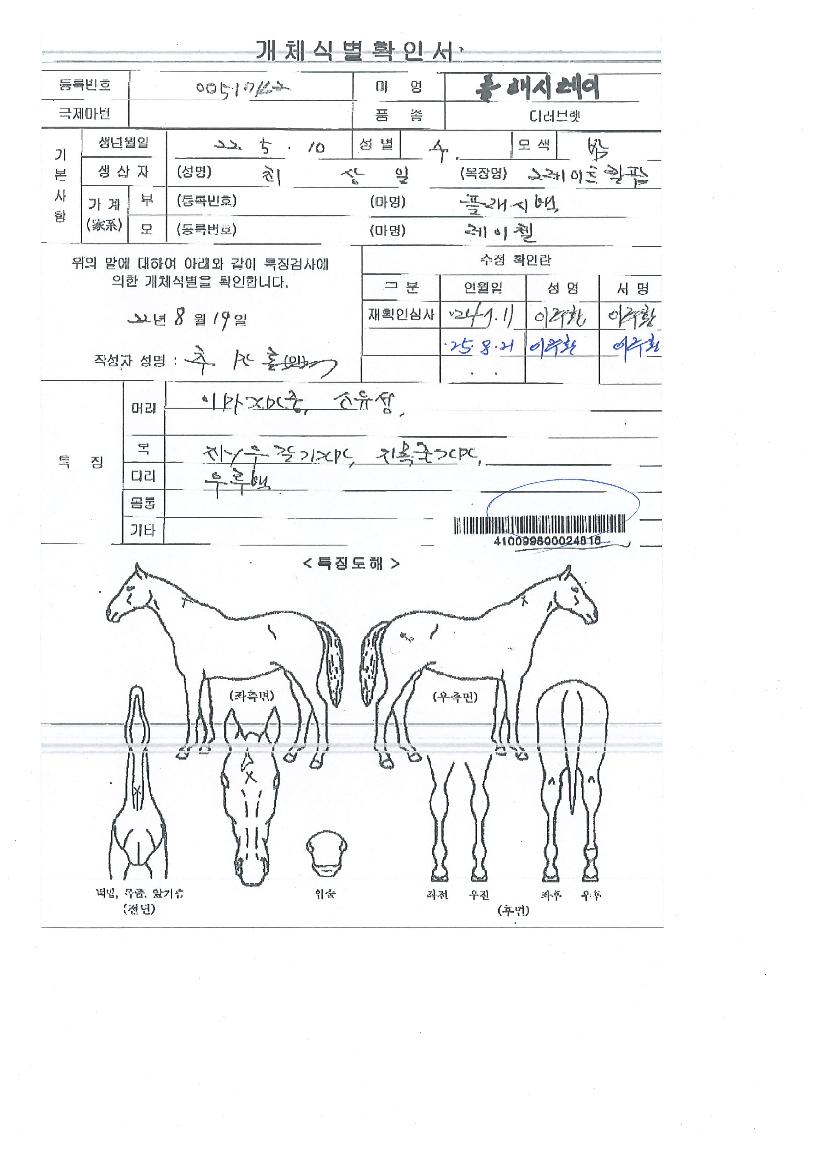 개체식별확인서
등록번호 0051762 마 명 플래시레이
국제마번 품 종 더러브렛
기본사항
생년월일 22. 5 . 10 성 별 수. 모 색 밤
생 산 자 (성명) 최 상 일 (목장명)
가 계 (家系) 부 (등록번호) (마명) 플래시백
모 (등록번호) (마명) 레이첼
위의 말에 대하여 아래와 같이 특징검사에
의한 개체식별을 확인합니다.
22년 8 월 19일
작성자 성명 : 추
수정 확인란
구 분 연월일 성 명 서 명
재확인심사 '24. 1. 11 이주환 이주환
'25. 8. 21 이주환 이주환
. .
특 징
머리
목
다리 우후백
몸통
기타
410099800024816
<특징도해>
(좌측면) (우측면)
턱밑, 목줄, 앞가슴
(전면)
입술
좌전 우전 좌후 우후
(후면)